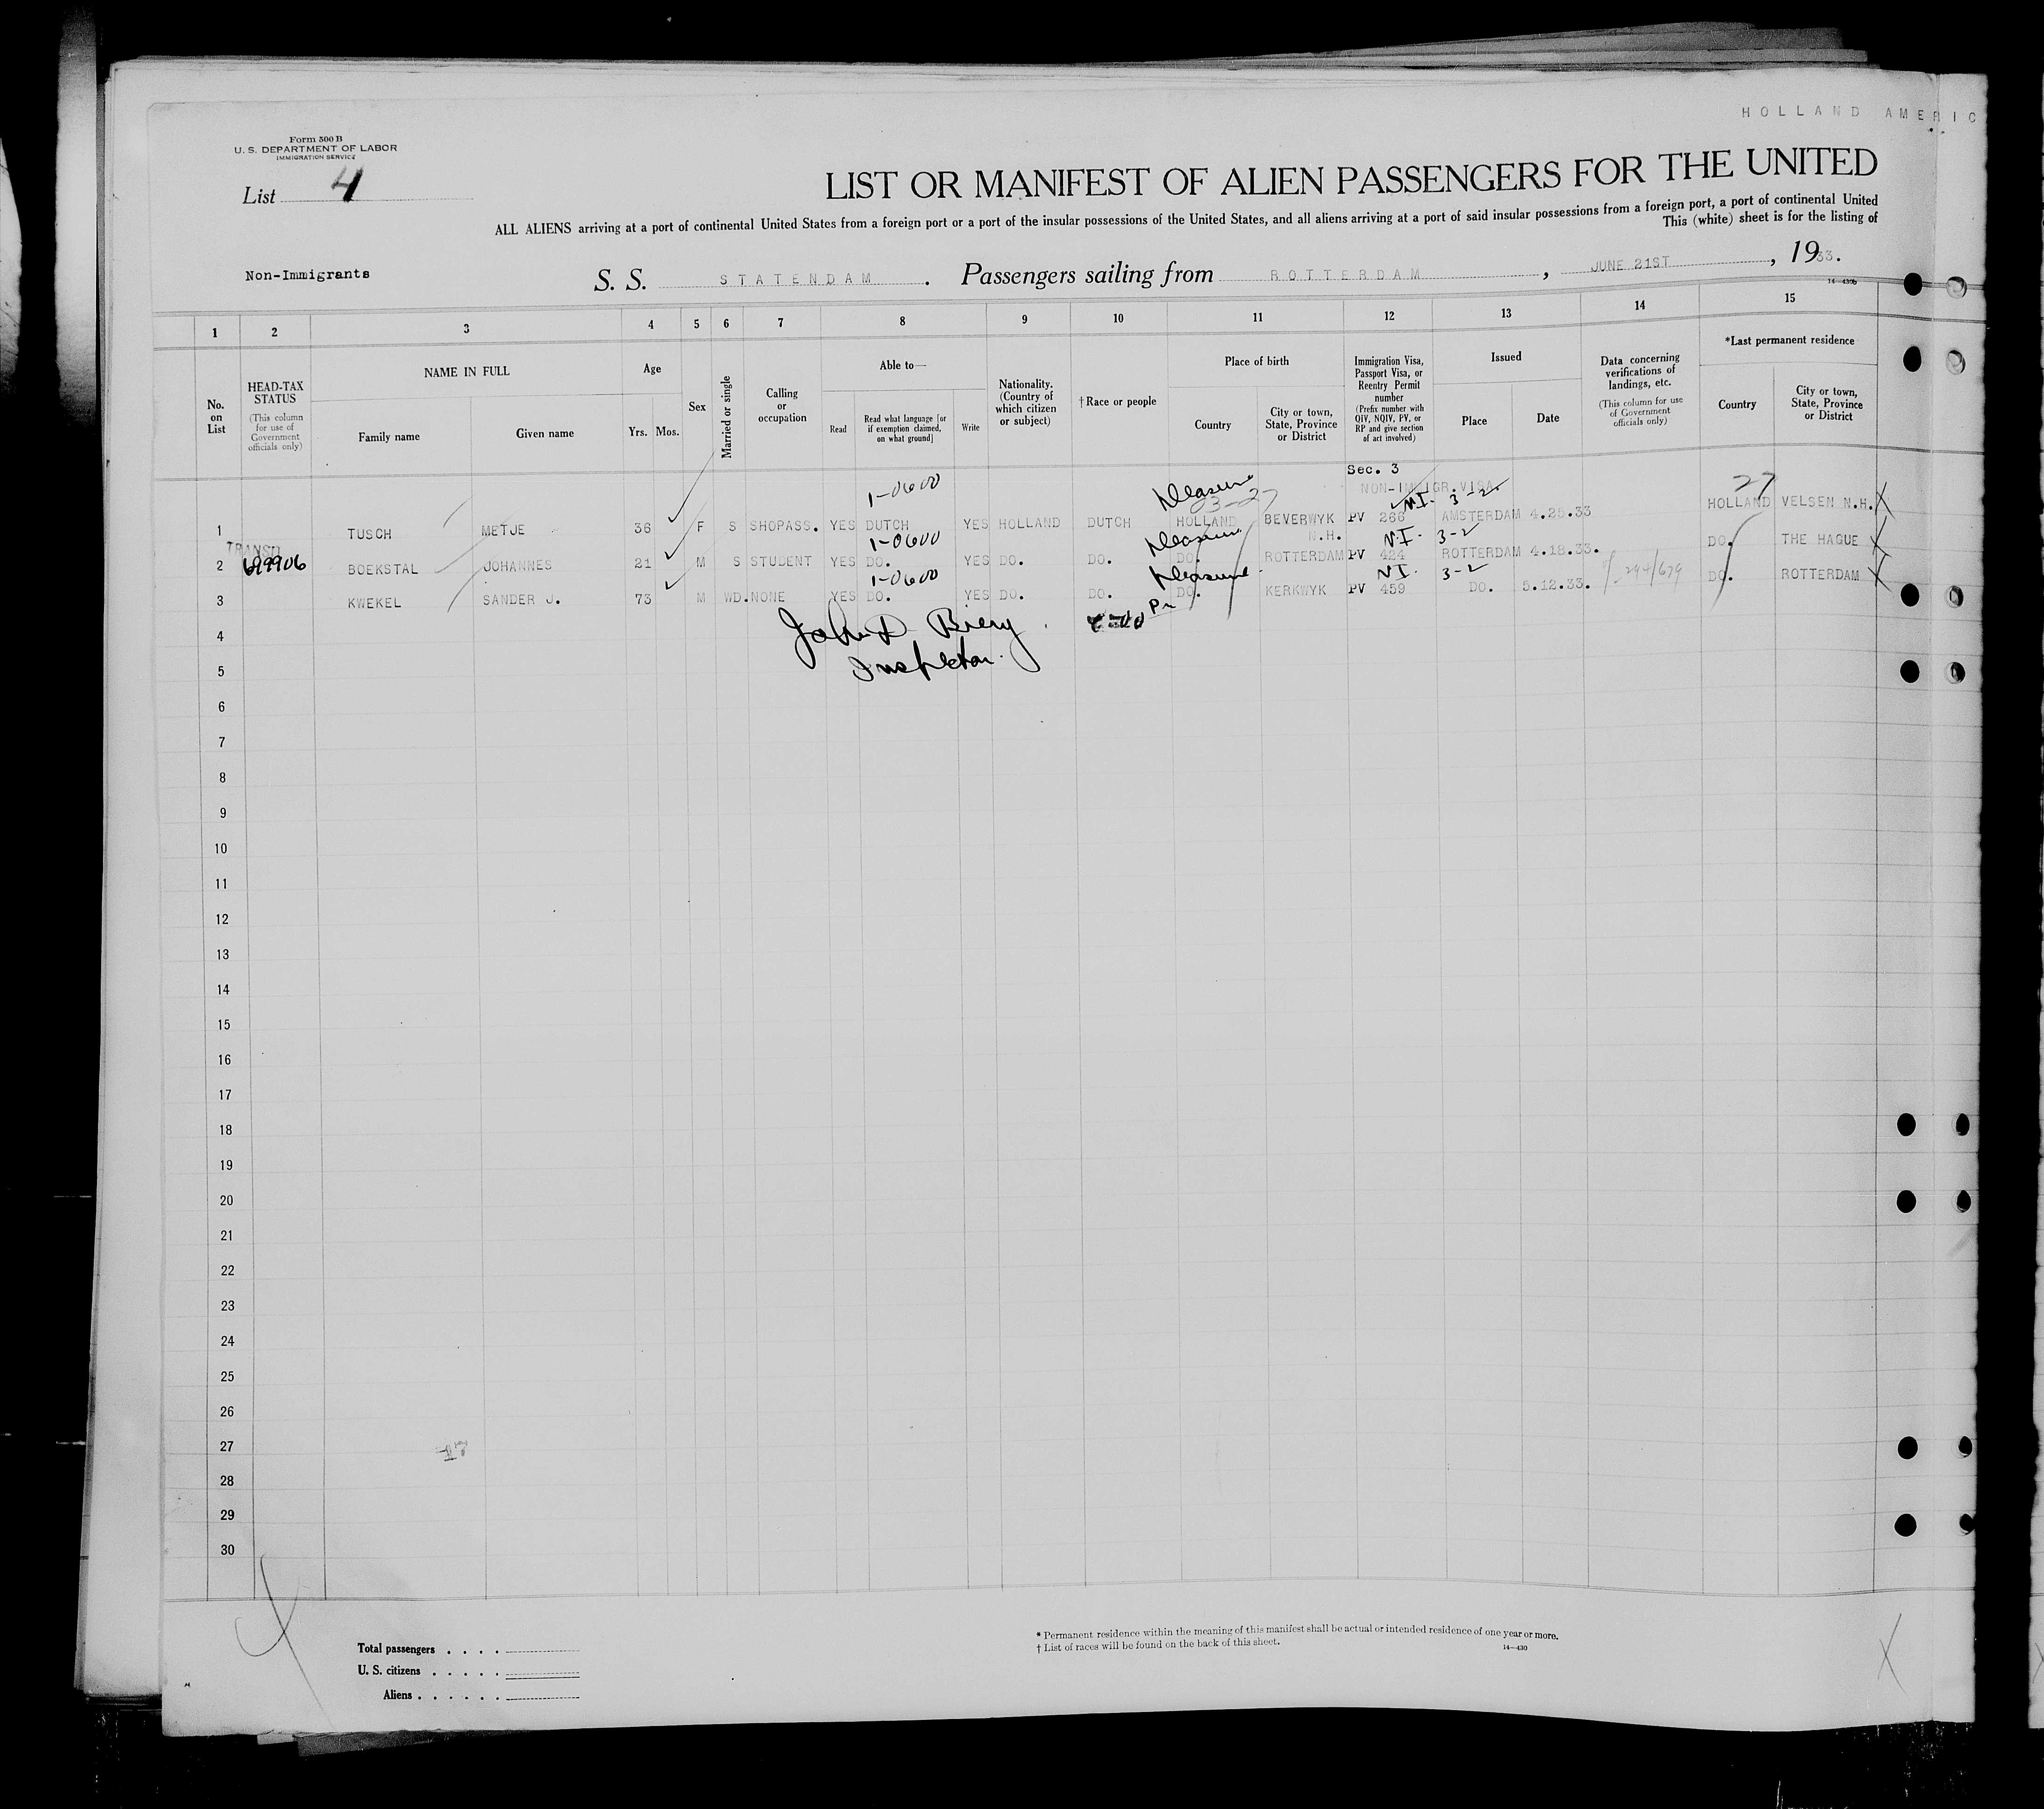 HOLLAND AMERIC
Form 500 B
U. S. DEPARTMENT OF LABOR
IMMIGRATION SERVICE
List 4
LIST OR MANIFEST OF ALIEN PASSENGERS FOR THE UNITED
ALL ALIENS arriving at a port of continental United States from a foreign port or a port of the insular possessions of the United States, and all aliens arriving at a port of said insular possessions from a foreign port, a port of continental United
This (white) sheet is for the listing of
Non-Immigrants
S. S. STATENDAM. Passengers sailing from ROTTERDAM, JUNE 21ST, 1933.
14—430b
1 2 3 4 5 6 7 8 9 10 11 12 13 14 15
No. on List
HEAD-TAX STATUS
(This column for use of Government officials only)
NAME IN FULL
Family name
Given name
Age
Yrs. Mos.
Sex
Married or single
Calling or occupation
Able to—
Read
Read what language [or if exemption claimed, on what ground]
Write
Nationality. (Country of which citizen or subject)
†Race or people
Place of birth
Country
City or town, State, Province or District
Immigration Visa, Passport Visa, or Reentry Permit number
(Prefix number with QIV, NQIV, PV, or RP and give section of act involved)
Issued
Place
Date
Data concerning verifications of landings, etc.
(This column for use of Government officials only)
*Last permanent residence
Country
City or town, State, Province or District
Sec. 3
NON-IMMIGR.VISA.
1-0600 Pleasure 03-27 N.I. 3-2 27
1 TUSCH METJE 36 F S SHOPASS. YES DUTCH YES HOLLAND DUTCH HOLLAND BEVERWYK N.H. PV 266 AMSTERDAM 4.25.33 HOLLAND VELSEN N.H.
TRANSIT 1-0600 Pleasure N.I. 3-2
2 699906 BOEKSTAL JOHANNES 21 M S STUDENT YES DO. YES DO. DO. DO. ROTTERDAM PV 424 ROTTERDAM 4.18.33. DO. THE HAGUE
1-0600 Pleasure N.I. 3-2 294/679
3 KWEKEL SANDER J. 73 M WD. NONE YES DO. YES DO. DO. DO. KERKWYK PV 459 DO. 5.12.33. DO. ROTTERDAM
Pr
4 John D Biery
Inspector.
5
6
7
8
9
10
11
12
13
14
15
16
17
18
19
20
21
22
23
24
25
26
27
28
29
30
Total passengers
U. S. citizens
Aliens
* Permanent residence within the meaning of this manifest shall be actual or intended residence of one year or more.
† List of races will be found on the back of this sheet.
14—430